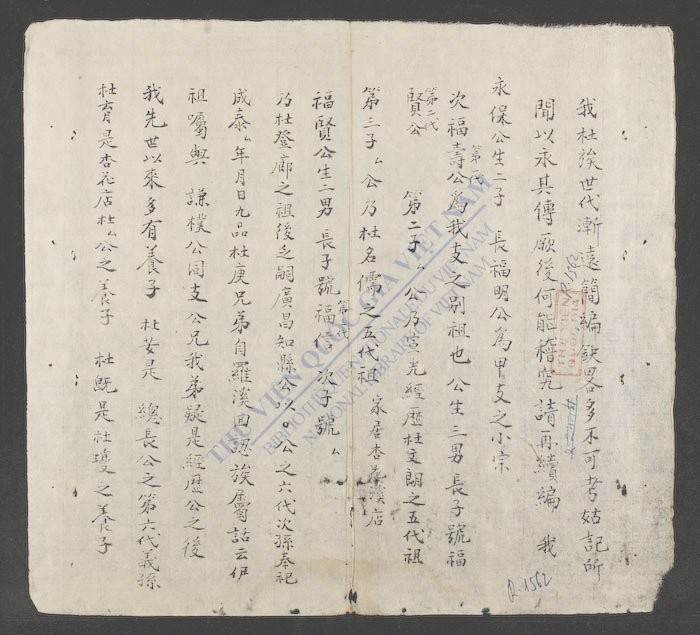 我杜族世代漸遠簡編缺畧多不可考姑記所
聞以永其傳厥後何能稽究請再續編 我
永保公生二子 長福明公為甲支之小宗
第一代
次福壽公為我支之別祖也 公生三男長子號福
第二代
賢公 第二子ム公乃宣光經歷杜文朗之五代祖
第三子ム公乃杜名儒之五代祖 家居杏花溪店
第代
福賢公生二男 長子號福 次子號ム
乃杜登廊之祖後乏嗣廣昌知縣公以。公之六代次孫奉祀
成泰ム年月日九品杜庚兄弟自羅溪回認族屬話云伊
祖囑與 謙樸公同支公兄我弟疑是經歷公之後
我先世以來多有養子 杜安是 總長公之第六代義孫
杜 是杏花店杜ム公之養子 杜既是杜瓊之養子
THƯ VIỆN QUỐC GIA VIỆT NAM
BIBLIOTHÈQUE NATIONALE DU VIETNAM
NATIONAL LIBRARY OF VIETNAM
R.1562
R.1562